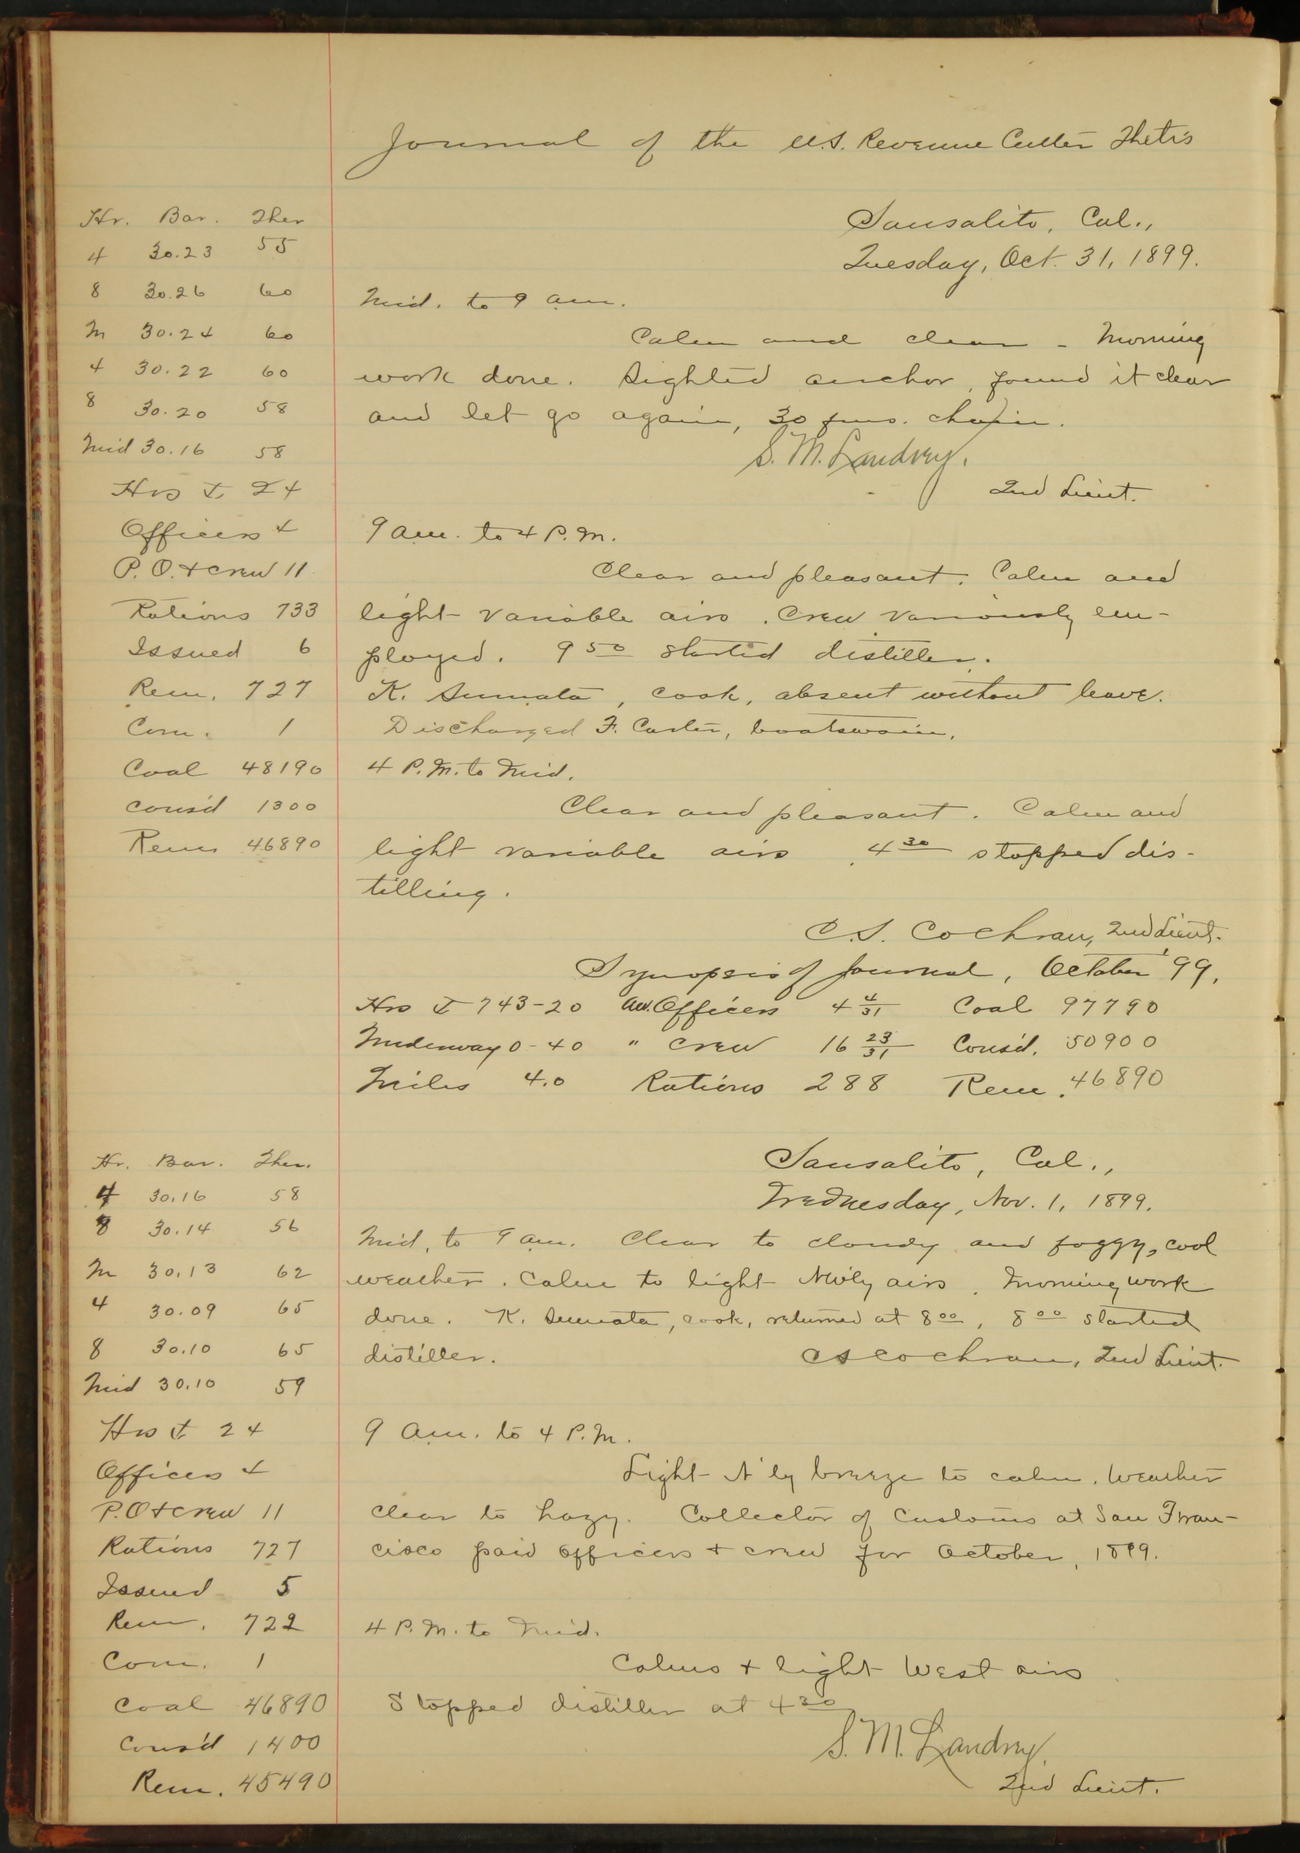 Journal of the U.S. Revenue Cutter Thetis
Hr. Bar. Ther
4 30.23 55
8 30.26 60
M 30.24 60
4 30.22 60
8 30.20 58
Mid 30.16 58
Hrs ⚓ 24
Officers 4
P.O. & crew 11
Rations 733
Issued 6
Rem. 727
Com. 1
Coal 48190
cons'd 1300
Rem 46890
Sausalito, Cal.,
Tuesday, Oct. 31, 1899.
Mid. to 9 am.
Calm and clear - Morning
work done. Sighted anchor, found it clear
and let go again, 30 fms. chain.
S. M. Landrey.
2nd Lieut.
9 am. to 4 P.M.
Clear and pleasant. Calm and
light variable airs. Crew variously em-
ployed. 9 50 started distiller.
K. Sumata, cook, absent without leave.
Discharged F. Carter, boatswain.
4 P.M. to Mid.
Clear and pleasant. Calm and
light variable airs. 4 30 stopped dis-
tilling.
C.S. Cochran, 2nd Lieut.
Synopsis of Journal, October '99.
Hrs ⚓ 743-20 Av. Officers 4 4/31 Coal 97790
Underway 0-40 " crew 16 23/31 Cons'd. 50900
Miles 4.0 Rations 288 Rem. 46890
Hr. Bar. Ther.
4 30.16 58
8 30.14 56
M 30.13 62
4 30.09 65
8 30.10 65
Mid 30.10 59
Hrs ⚓ 24
Officers 4
P.O & crew 11
Rations 727
Issued 5
Rem. 722
Com. 1
Coal 46890
Cons'd 1400
Rem. 45490
Sausalito, Cal.,
Wednesday, Nov. 1, 1899.
Mid. to 9 am. Clear to cloudy and foggy, cool
weather. Calm to light NW'ly airs. Morning work
done. K. Sumata, cook, returned at 8 00, 8 00 started
distiller. CS Cochran, 2nd Lieut.
9 am. to 4 P.M.
Light N'ly breeze to calm. Weather
clear to hazy. Collector of Customs at San Fran-
cisco paid officers & crew for October, 1899.
4 P.M. to Mid.
Calms & light West airs
Stopped distiller at 4 30
S. M. Landrey.
2nd Lieut.